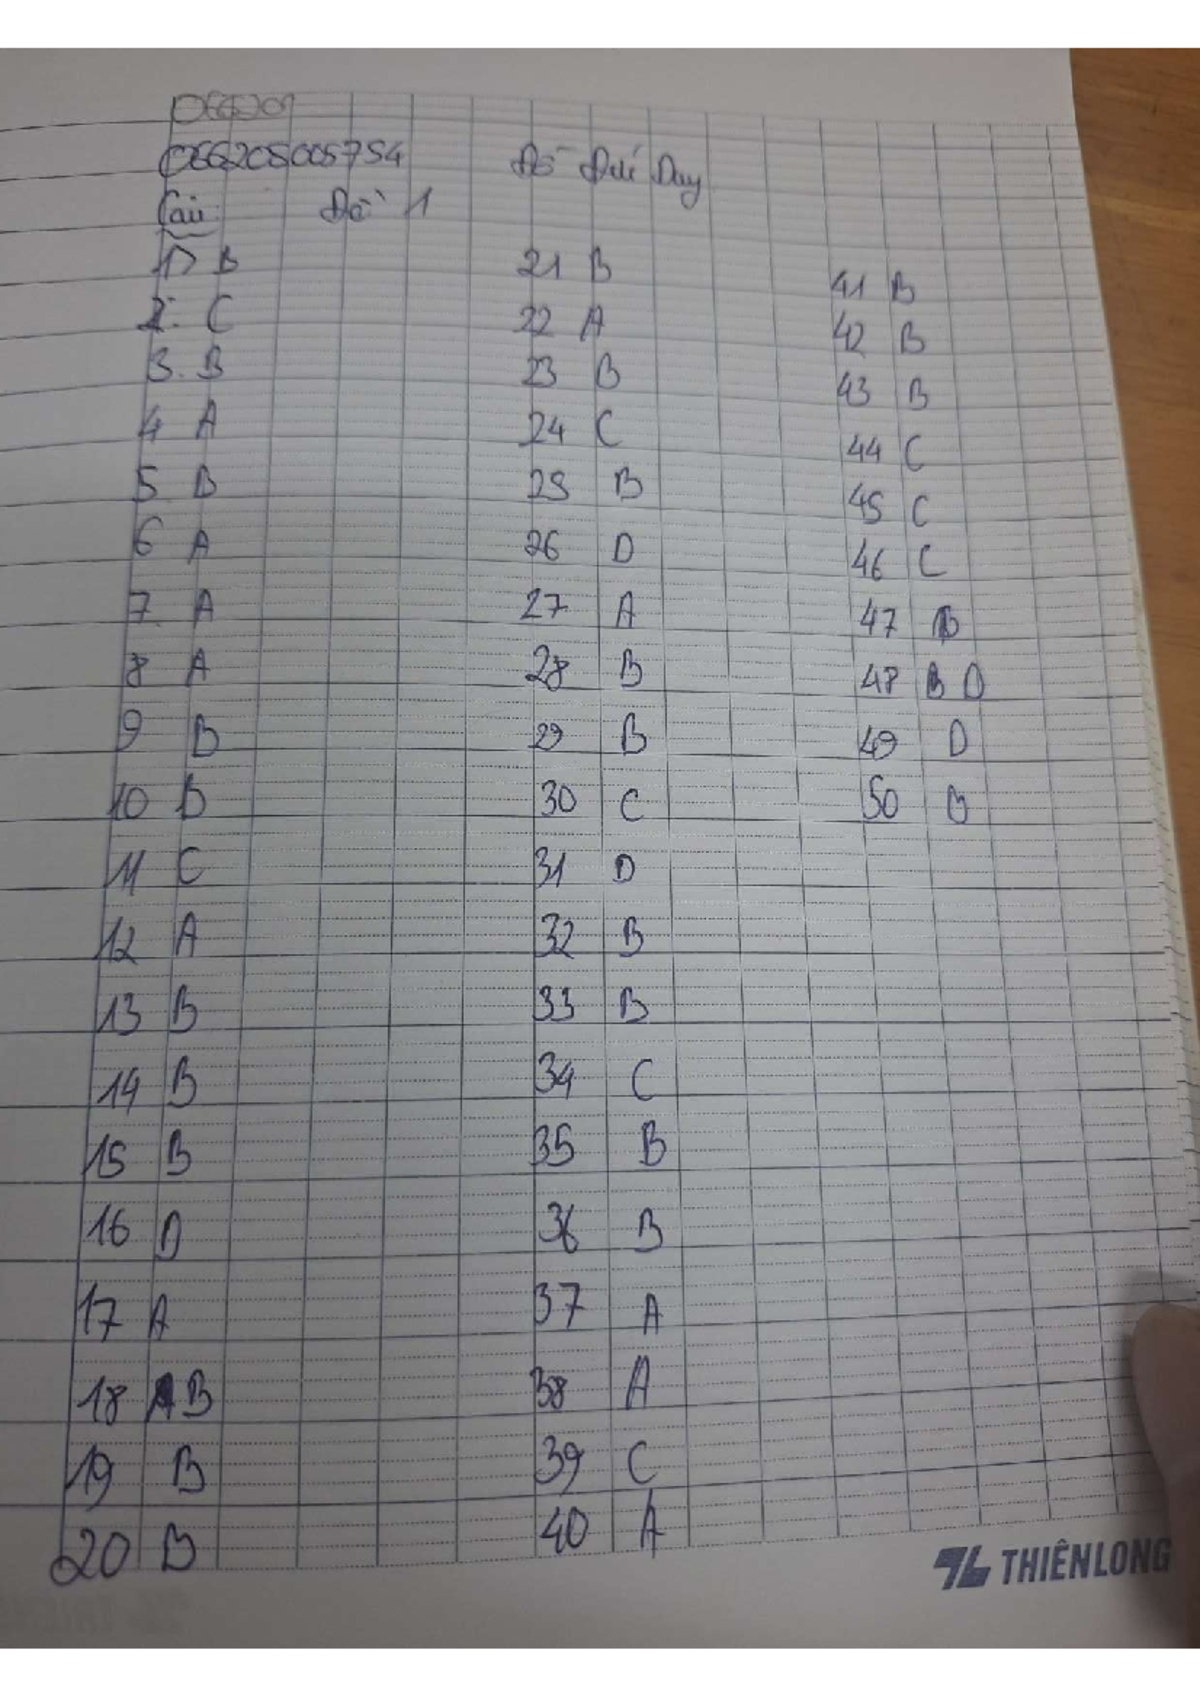 066201
066205005754 Đỗ Đức Duy
Câu: Đề 1
1) B
2: C
3. B
4 A
5 B
6 A
7. A
8 A
9 B
10 B
11 C
12 A
13 B
14 B
15 B
16 D
17 A
18 B
19 B
20 B
21 B
22 A
23 B
24 C
25 B
26 D
27 A
28 B
29 B
30 C
31 D
32 B
33 B
34 C
35 B
36 B
37 A
38 A
39 C
40 A
41 B
42 B
43 B
44 C
45 C
46 C
47 B
48 D
49 D
50 B
THIÊN LONG